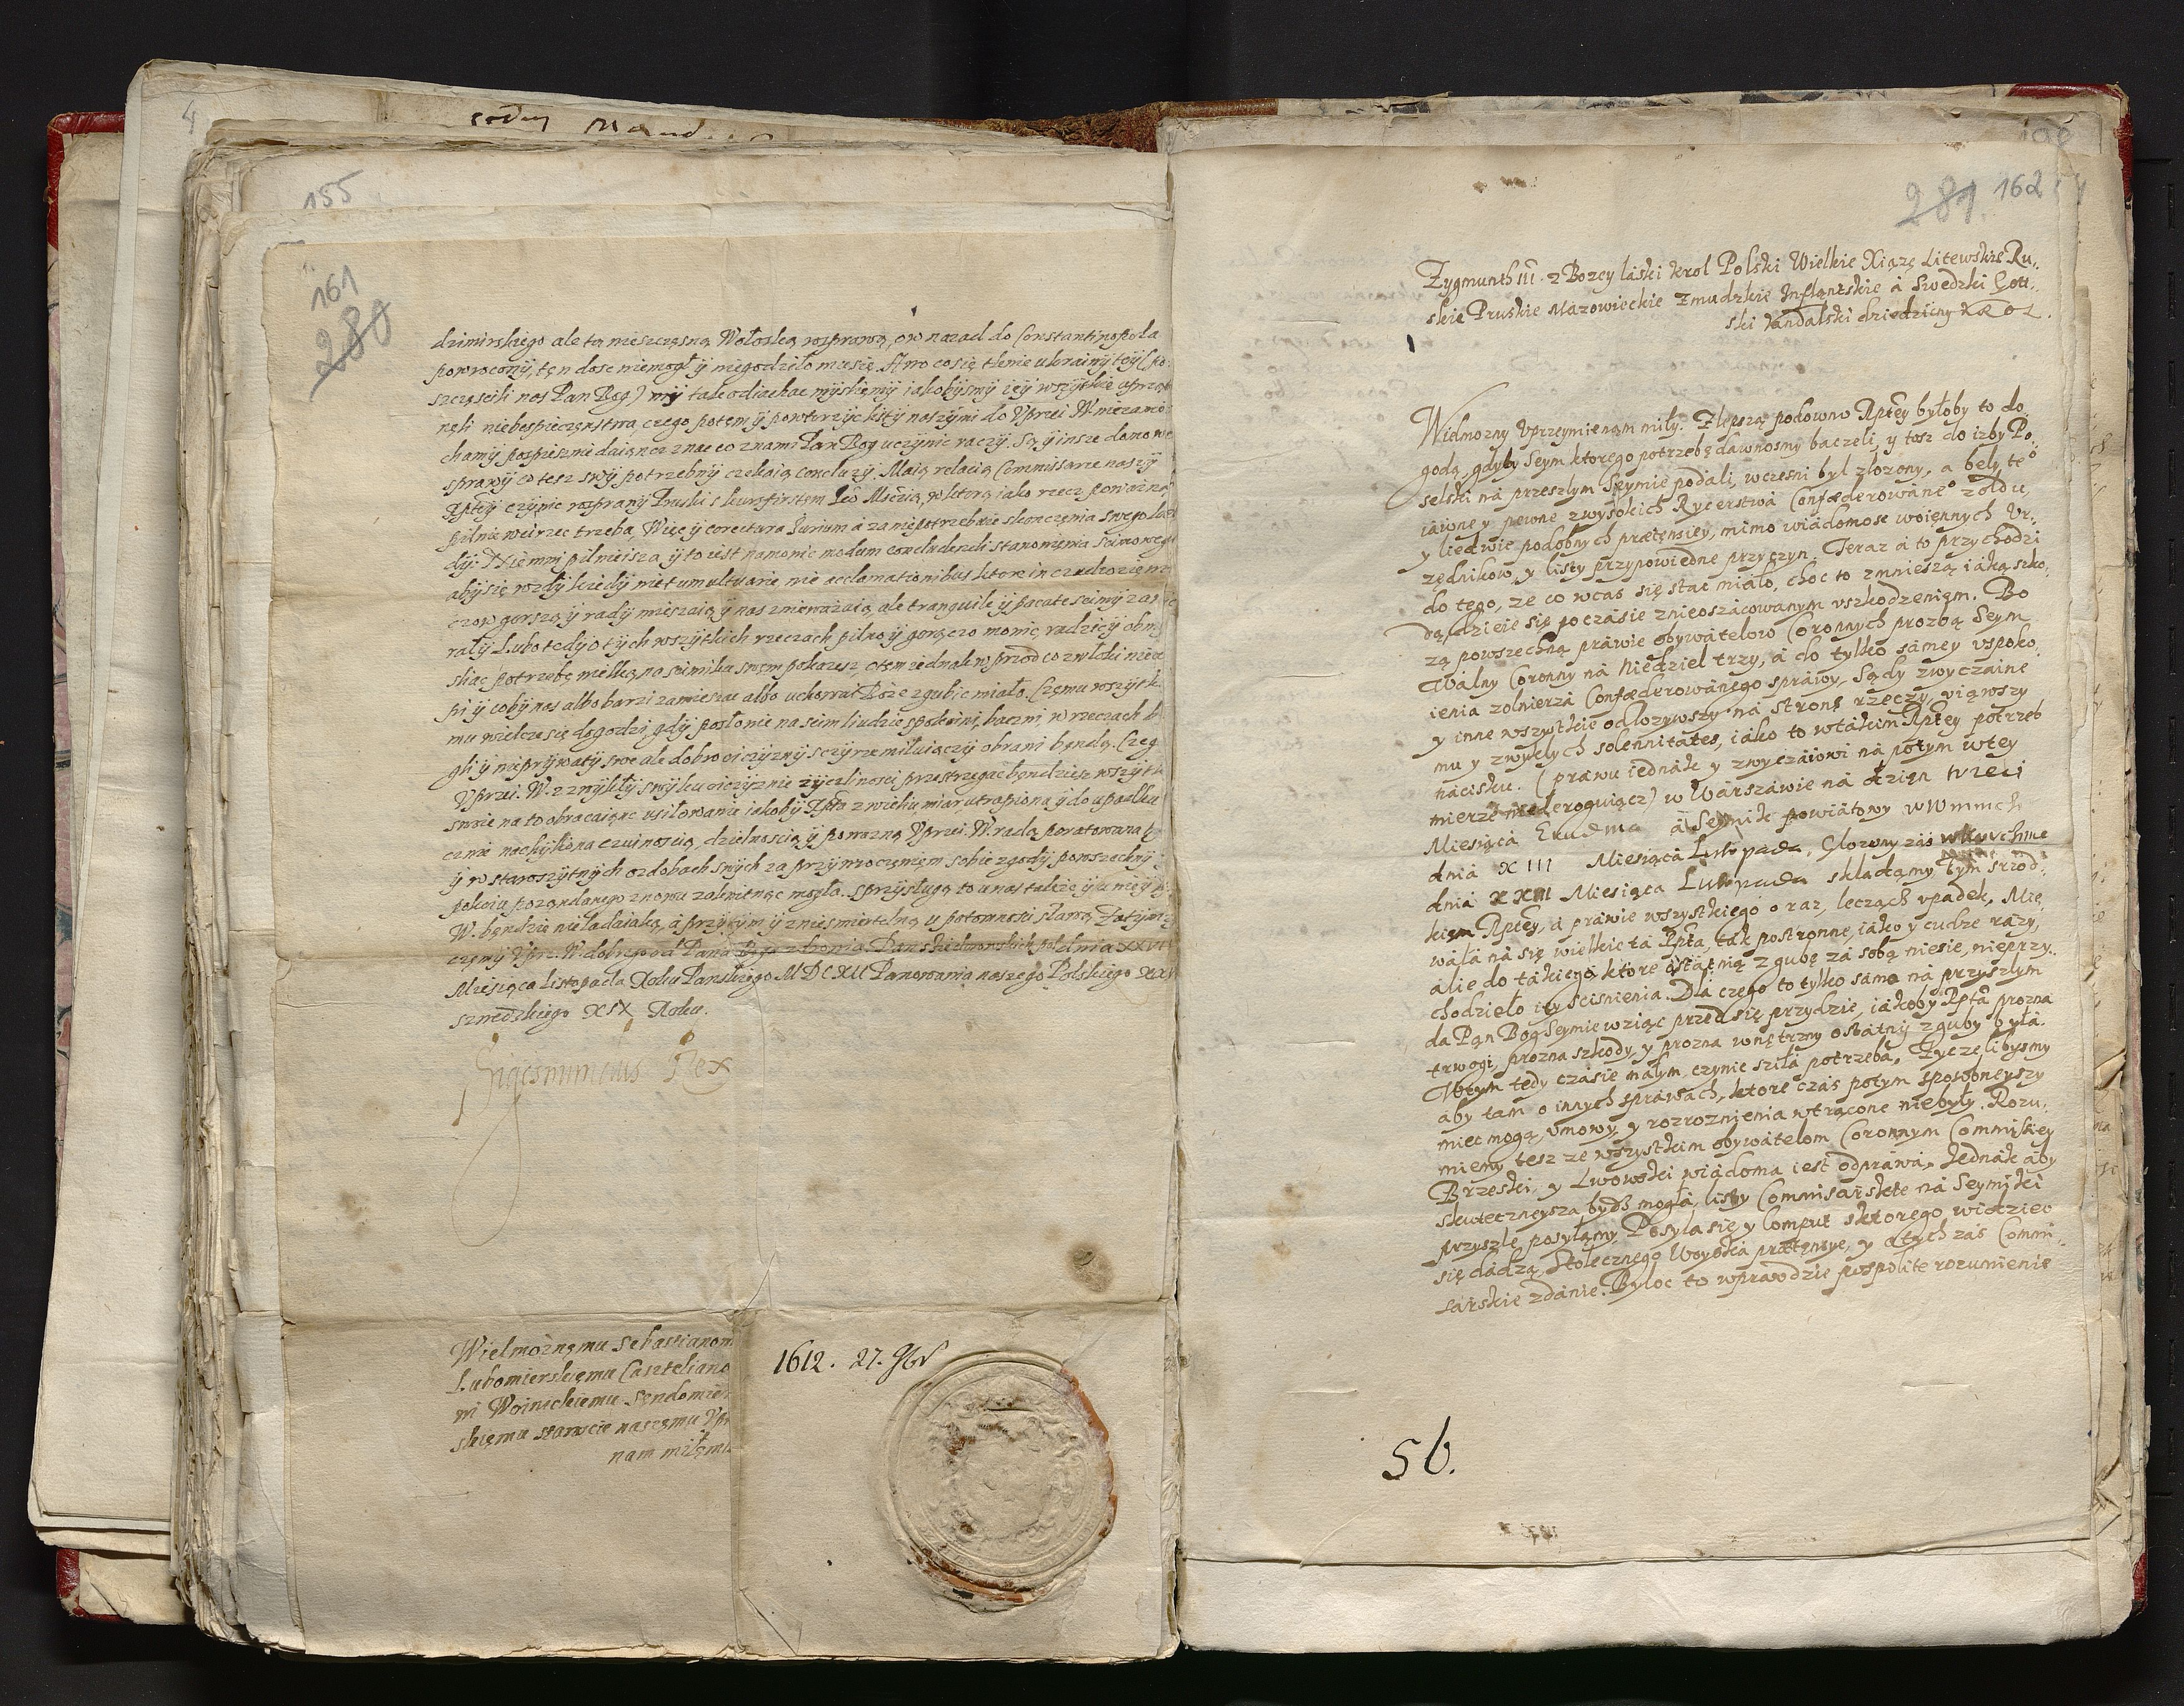 4
155
161
280
dzimirskiego ale tą nieszczęsną Wołoską rosprawą, ow nazad do Constantinopola
powrocony, tęn dosc niemogł y niegodziło mu się. A wo co się tknie ukrainy tey (po
szczęscili nas Pan Bog) my tak odiachac myslięmy iakobysmy iey wszytkie uprząt
nęli niebespieczęnstwa, czego potęm y powturzyc listy naszymi do Uprzei W. niezanie
chamy pospiesznie daiąncz znac co z nami Pan Bog uczynic raczy. Są y insze dawne
sprawy co tesz swy potrzebny czekaią concluzy. Maią relacią Commissarze naszy
Rptey czynic rosprawy Pruski s kurfirstęm Jeo Mscią, w ktorą iako rzecz powazną
pilnie weirzec trzeba, Więc y corectura Iurium a za nie potrzebuie skonczęnia swego
dy. Niemni pilnieisza y to iest namowic modum concludendi stanowięnia seimowego
aby się wzdy kiedy nie tumultuarie nie acclamationibus ktore in
czow gorszą y rady mieszaią y nas zniewazaią ale tranquile y pacate seimy
rały Lubo tedy o tych wszytkich rzeczach pilno y gorąco mowic radzic y obmy
slac potrzebę wielką na seimiku swęm pokazesz, otem iednak w przod co zwłoki nie
pi y coby nas albo barzi zamieszac albo uchowai Boze zgubic miało. Częmu wszytk
mu wielcze się dogodzi, gdy posłowie na seim liudzie spokoini, baczni, w rzeczach bi
gli y nieprywaty swe ale dobro oiczyzny sczyrze miłuiączy obrani będą. Czeg
Uprzei. W. z zwykłey swy ku oiczyznie zyczliwosci przestrzegac będziesz wszytk
swoie na to obracaiąnc usiłowanie iakoby Rpta z wieliu miar utrapiona y do upadku
cznie nachylona czuinoscią, dzielnoscią y powazną Uprzei. W. radą poratowana
y w staroszytnych ozdobach swych za przywroczęniem sobie zgody powszechny
pokoia pozondanego znowu zakwitnąc mogła. sprzysługą to u nas także y u niey
W. będzie nieladaiaką, a przytym y z niesmiertelną u potomnosci sławą. Zatym
czemy Uprz. W. dobrego od Pana Boga zdrowia. Dan dnia XXVII
Miesiąca Listopada Roku Panskiego MDCXII Panowania naszego Polskiego XXV
szwedzkiego XIX Roku.
Sigismundus Rex
Wielmoznęmu Sebastianow
Lubomierskięmu Caszteliano
wi Woinickiemu Sęndomier
skięmu staroscie naszęmu Upr
nam miłęmu
1612. 27. 9br
281 162
Zygmunth III. z Bozey łaski krol Polski Wielkie Xiązę Litewskie Ru..
skie Pruskie Mazowieckie Zmudzkie Inflantskie à Swedzki Gott..
ski Vandalski dziedziczny KROL.
Wielmozny vprzeymienąm miły. Z lepszą podowno Rptey byłoby to do
godą, gdyby Seym ktorego potrzebę dawnosmy baczeli, y tosz do izby Po..
selski na przeszłym Seymie podali, wczesni był złozony, a beły teo
iawne y pewne z wysokich Rycerstwa Confæderowaneo zołdu,
y liedwie podobnych prætęnsiey, mimo wiadomosc woięnnych Vr..
zędnikow, y listy przypowiedne przyczyn. Teraz á to przychodzi
do tego, ze co wczas się stac miało, choc to zmnieszą iáką szko,
dą, dzieie się po czasie znieoszacowanym vszkodzenięm. Bo
zą powszechną práwie obywátelow Coronnych prozbą Seym
Walny Coronny ná Niedziel trzy, á do tylko sámey vspoko,
ienia zolnierzá Confæderowánego spráwy, Sądy zwyczáine
y inne wszystkie odłozywszy ná stronę rzeczy, viąwszy
mu y zwykłych solennitates, iáko to wtákim Rptey potrzeb
nácisku. (prawu iednák y zwyczáiowi ná potym wtey
mierze niederoguiącz) w Wárszáwie ná dzięn trzeci
Miesiącá Grudnia á Seymik powiátowy w
dnia XIII Miesiącá Listopada, Głowny záś
dnia XXIII Miesiąca Listopada składąmy tym srzod..
kiem Rptey, á práwie wszystkiego oraz, lecząch vpadek, Mie
wáłá ná się wielkie tá Rptá, ták postronne, iáko y cudze rázy,
alie do tákiego, ktore ostátnią zgubę zá sobą niesie, nieprzy..
chodzieło iey scisnienia. Dlá czego to tylko sámo ná przyszłym
da Pąn Bog Seymie wziąc przed się przydzie, iákoby Rptá prozna
trwogi, prozna szkody, y prozna wnętrzny ostátnij zguby byłá.
Wtym tedy czásie máłym, czynic sziłá potrzebá, Zyczelibysmy
aby tam o innych sprawach, ktore czás potym sposobneyszy
miec mogą, vmowy, y rozroznienia wtrącone niebyły. Rozu,
miemy tesz ze wszystkim obywátelom Coronnym Commissiey
Brzeski, y Lwowski wiádoma iest odpráwá. Iednák aby
skutecznieysza bydz mogłá, listy Commisárskie ná Seymiki
przyszłe posyłąmy. Posyla się y Comput z ktorego widziec
się dádzą, Stołecznego Woyská prætęnsye, y o tych zás Commi,
sárskie zdánie. Byłoc to wprawdzie pospolite rozumienie
56.